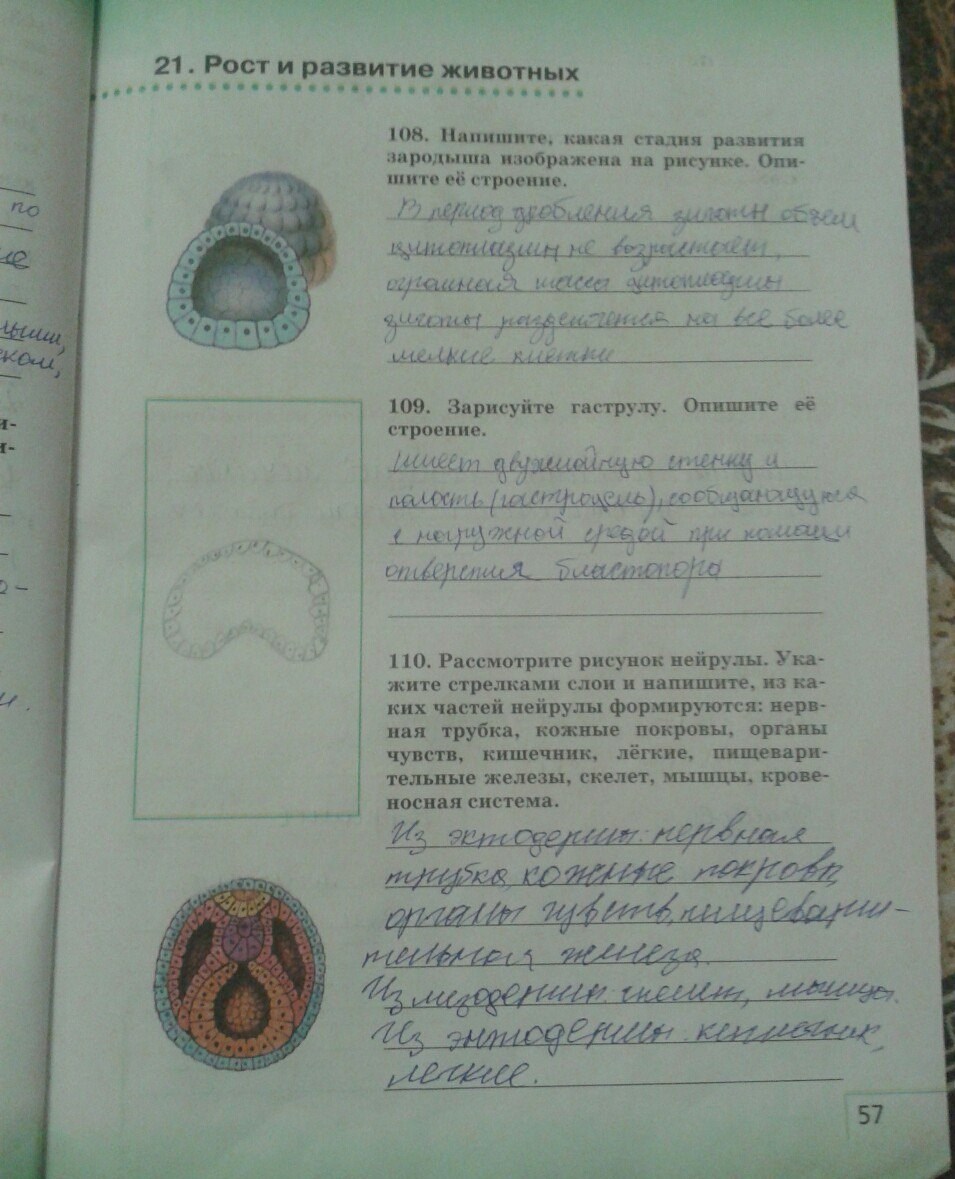 21. Рост и развитие животных
108. Напишите, какая стадия развития
зародыша изображена на рисунке. Опи-
шите её строение.
В период дробления зиготы объем
цитоплазмы не возрастает,
огромная масса цитоплазмы
зиготы разделяется на все более
мелкие клетки
109. Зарисуйте гаструлу. Опишите её
строение.
Имеет двухслойную стенку и
полость (гастроцель), сообщающуюся
с наружной средой при помощи
отверстия бластопора
110. Рассмотрите рисунок нейрулы. Ука-
жите стрелками слои и напишите, из ка-
ких частей нейрулы формируются: нерв-
ная трубка, кожные покровы, органы
чувств, кишечник, лёгкие, пищевари-
тельные железы, скелет, мышцы, крове-
носная система.
Из эктодермы: нервная
трубка, кожные покровы,
органы чувств, пищевари-
тельная железа.
Из мезодермы: скелет, мышцы.
Из энтодермы: кишечник,
легкие.
57
по